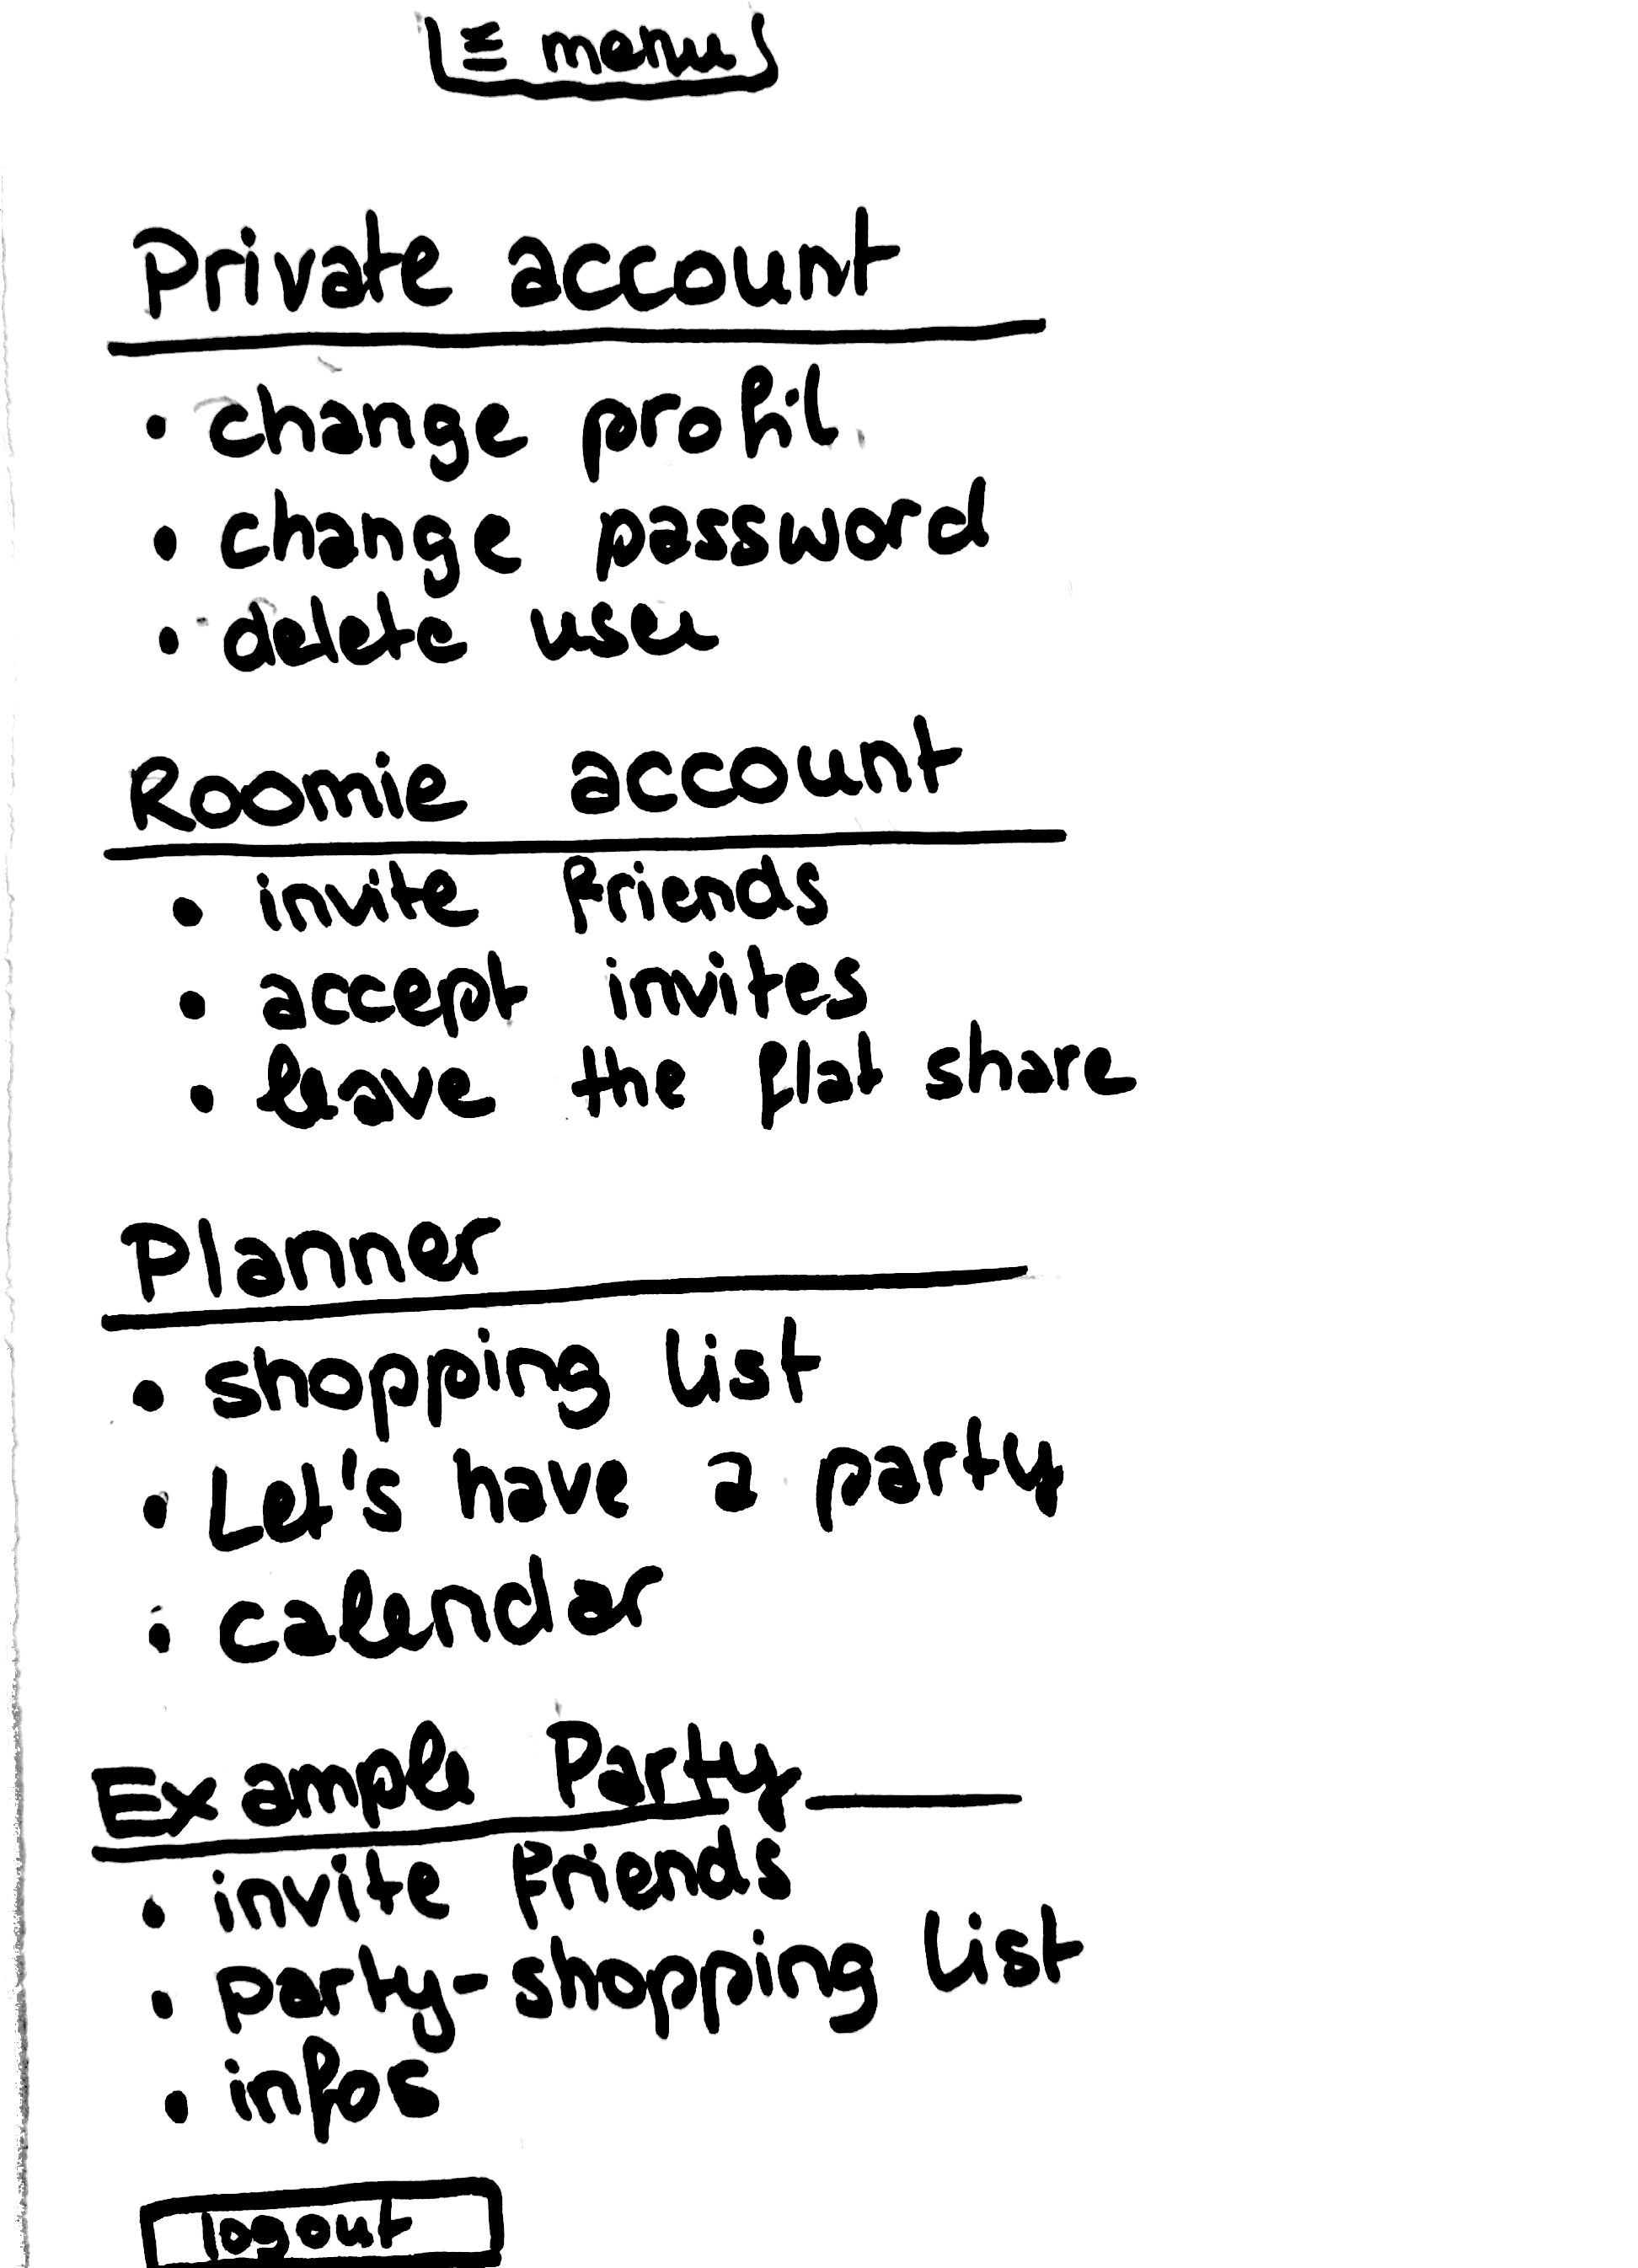 ≡ menu
Private account
• change profil
• change password
• delete user
Roomie account
• invite friends
• accept invites
• leave the flat share
Planner
• shopping list
• Let's have a party
• calendar
Example Party
• invite friends
• party-shopping list
• infos
logout